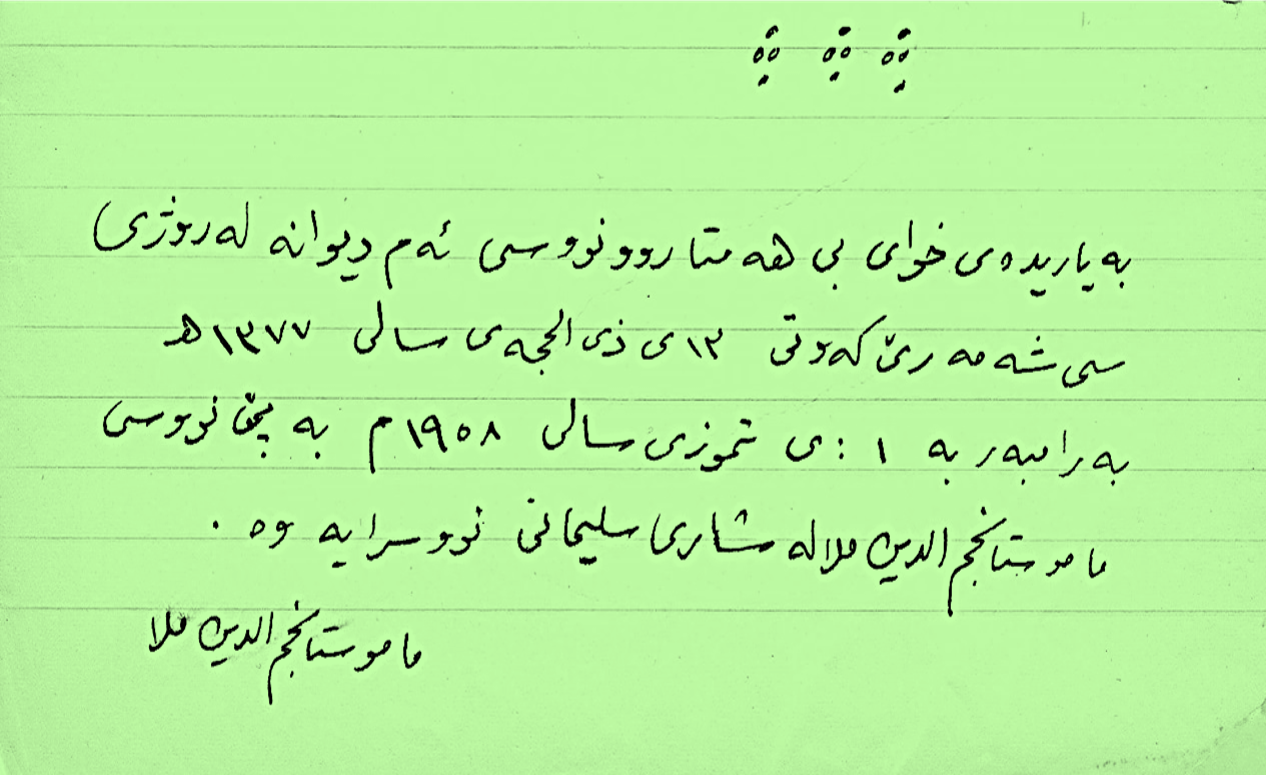 به یاریده ی خوای بی هه متا روو نووسی ئه م دیوانه له روژی
سی شه مه رێ که وتی ١٣ ی ذی الحجه ی سالی ١٣٧٧هـ
به رامبه ر به ١ : ی تموزی سالی ١٩٥٨م به پێ نووسی
ماموستا نجم الدین ملا له شاری سلیمانی نووسرایه وه .
ماموستا نجم الدین ملا